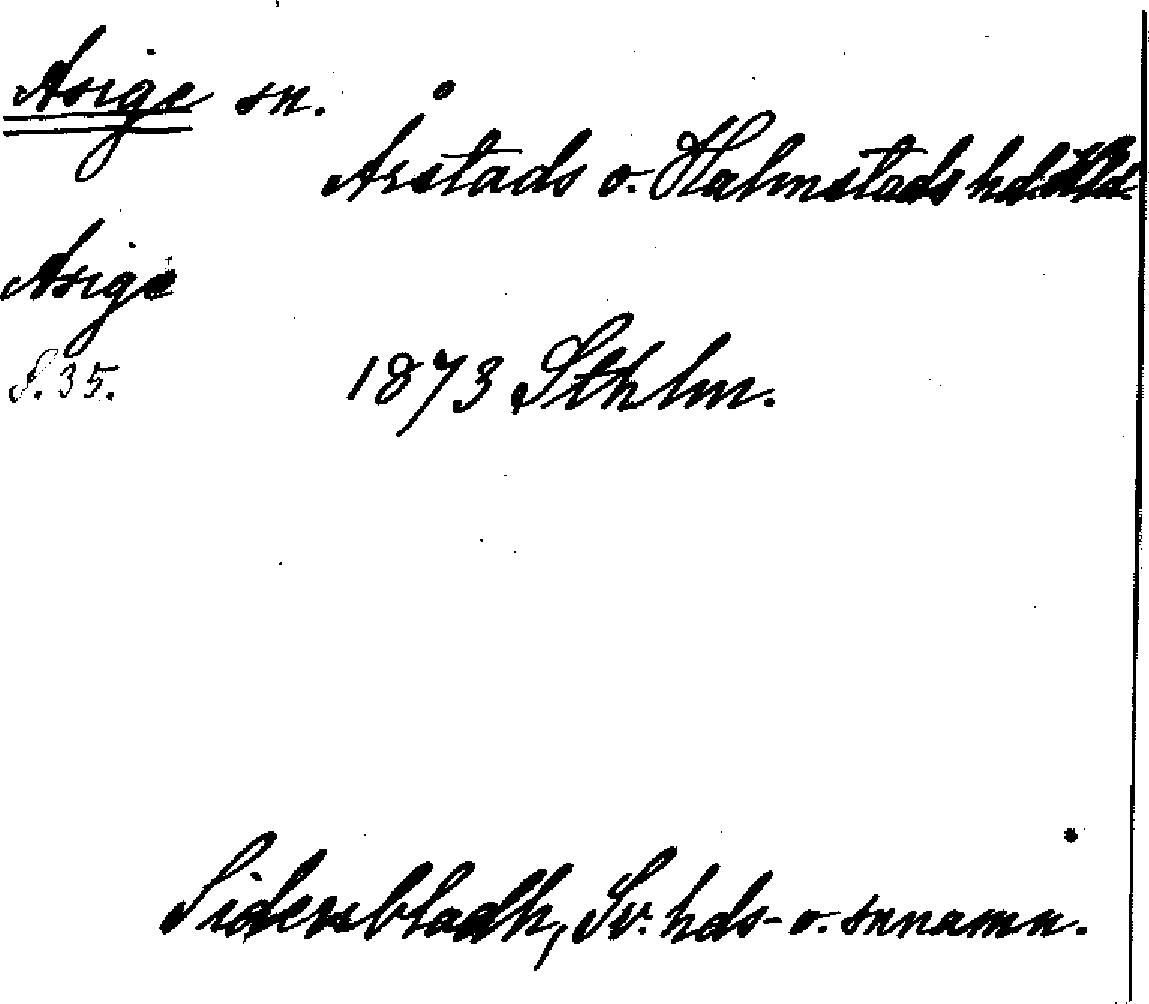 Asige sn.
Årstads o. Halmstads hd
Asige
S. 35.
1873 Sthlm.
Sidenbladh, Sv. hds- o. snnamn.